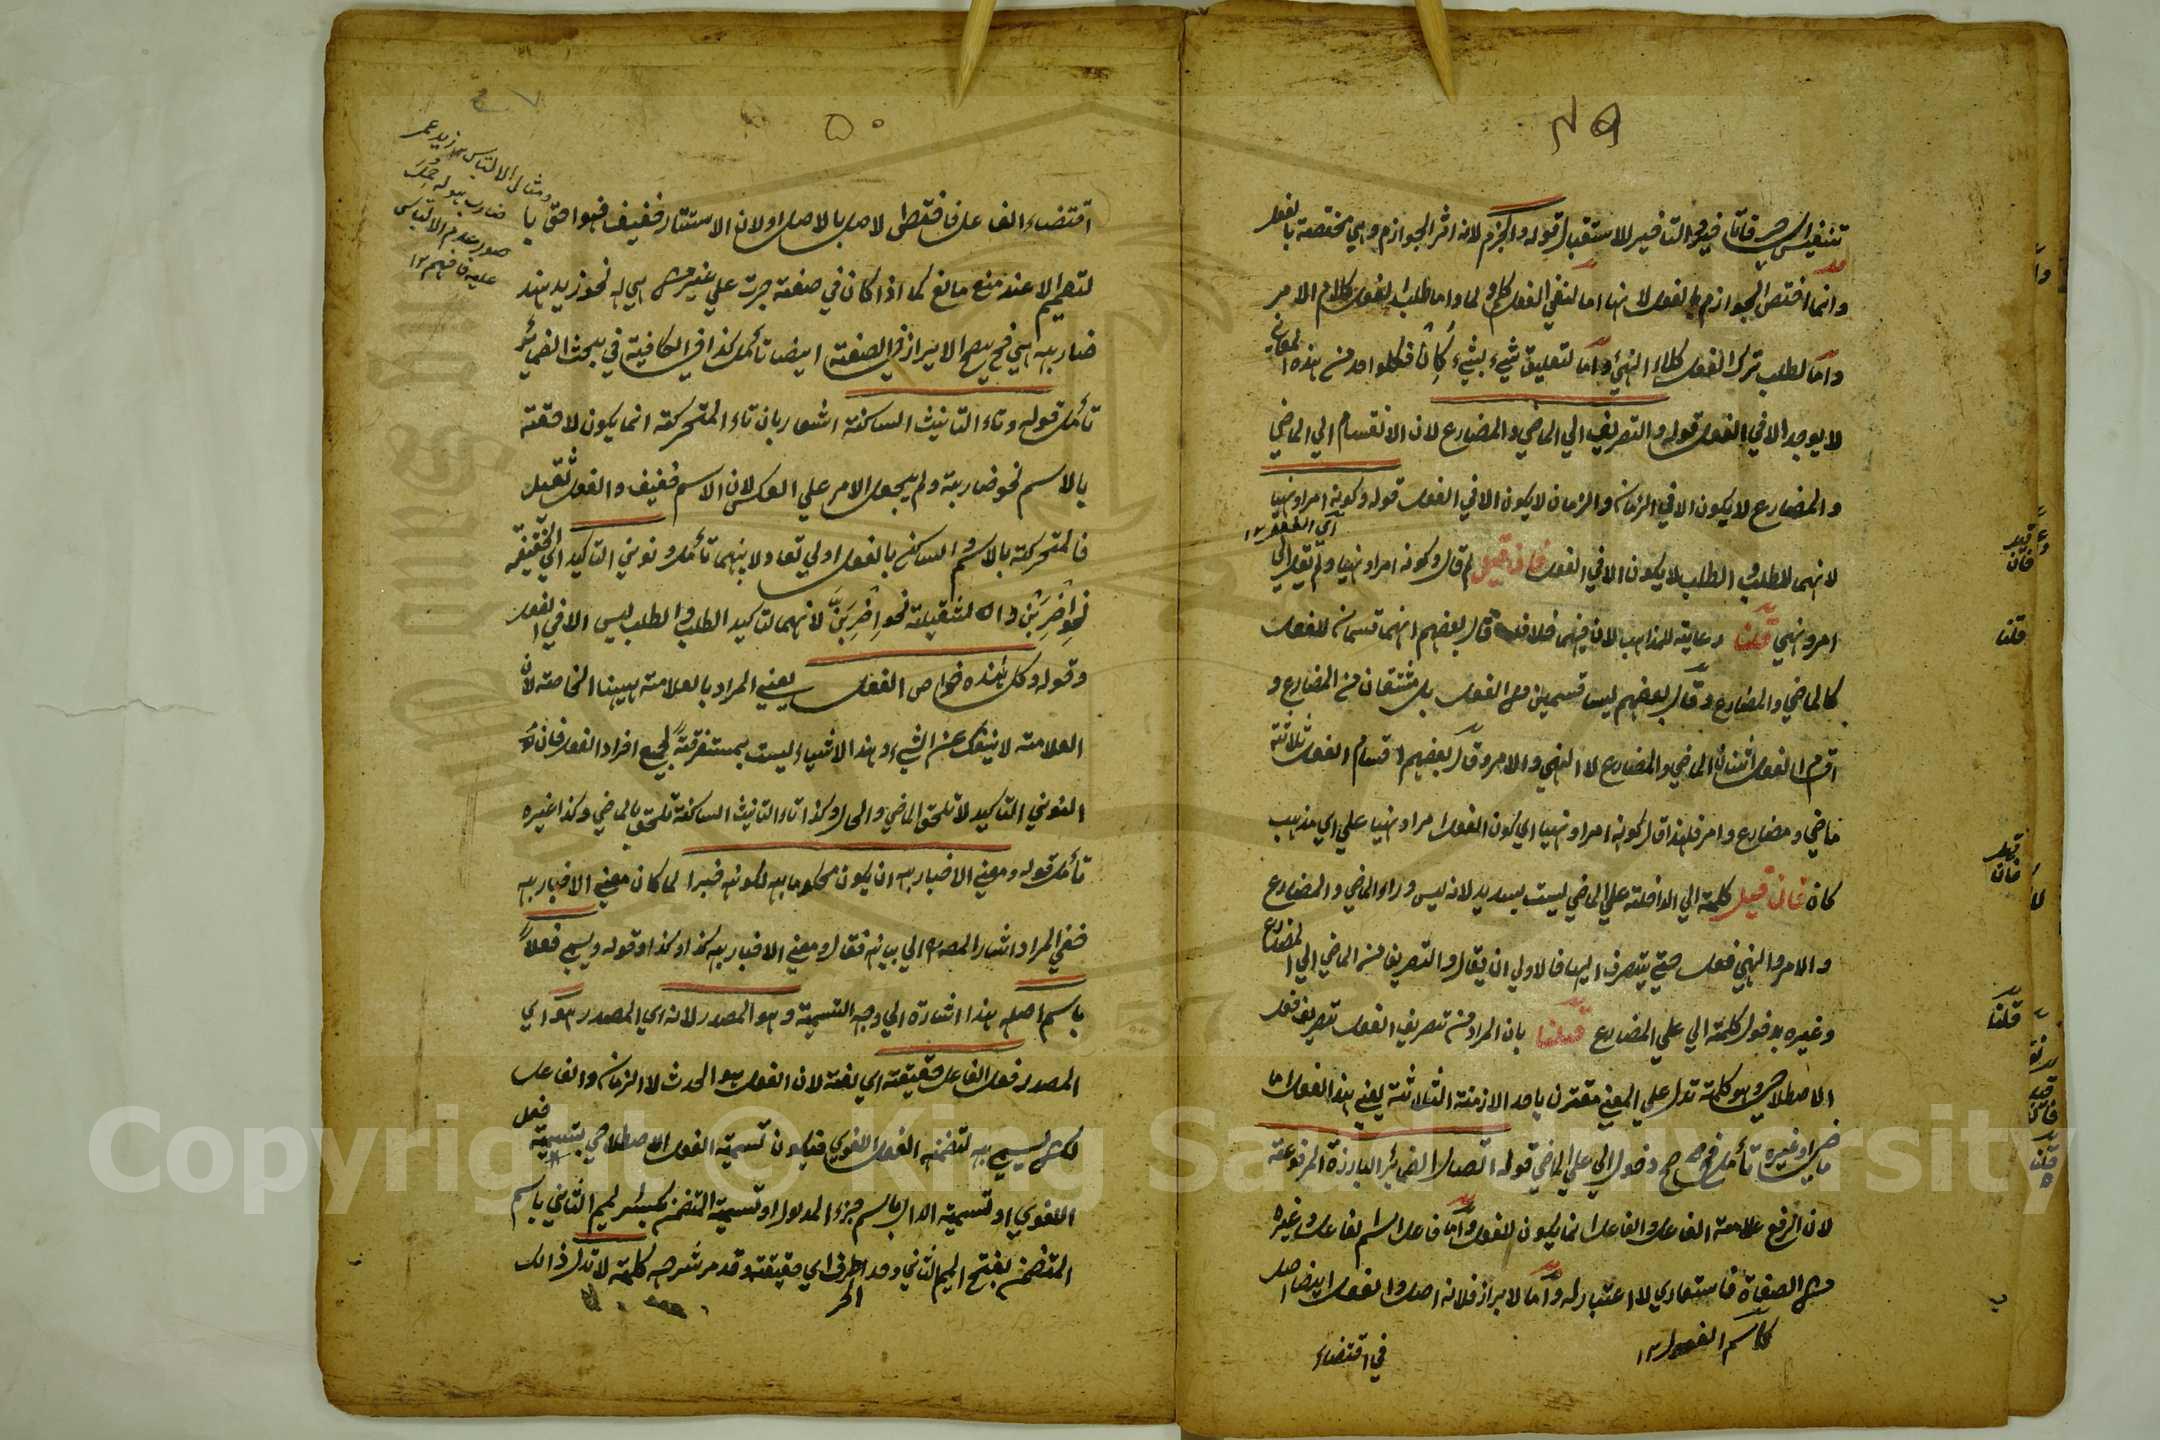 ٤٩
تنفيس اي فيه التاخير للاستقبال قوله والجزم لانه اثر الجوازم وهي مختصة بالفعل
وانما اختص الجوازم بالفعل لانها اما لنفي الفعل كلم ولما واما طلب الفعل كلام الامر
واما لطلب ترك الفعل كلاء النهي واما لتعليق شيء بشيء كإن فكل واحد من هذه المعاني
لا يوجد الا في الفعل قوله والتصريف الي الماضي والمضارع لان الانقسام الي الماضي
والمضارع لا يكون الا في الزمان والزمان لا يكون الا في الفعل قوله وكونه امرا ونهيا
اي الفعل ١٢
لانهما للطلب والطلب لا يكون الا في الفعل فان قيل لم قال وكونه امرا ونهيا ولم يقل الي
امر ونهي قلنا رعاية للمذاهب لان فيهما خلافا قال بعضهم انهما قسمان للفعل
كالماضي والمضارع وقال بعضهم ليسا قسمين من الفعل بل مشتقان من المضارع و
اقسام الفعل اثنان الماضي والمضارع لا النهي والامر وقال بعضهم اقسام الفعل ثلاثة
ماضي ومضارع وامر فلهذا قال كونه امرا ونهيا اي كون الفعل امرا ونهيا علي اي مذهب
كان فان قيل كلمة الي الداخلة علي الماضي ليست بسديد لانه ليس وراء الماضي والمضارع
والامر والنهي فعل حتي يتصرف اليها فالاولي ان يقال والتصريف من الماضي الي المضارع
وغيره بدخول كلمة الي علي المضارع قلنا بان المراد من تصريف الفعل تصريف فعل
الاصطلاحي وهو كلمة تدل علي المعني مقترن باحد الازمنة الثلاثة يعني هذا الفعل اما
ماضي او غيره تأمل فح صح دخول الي علي الماضي قوله اتصال الضمائر البارزة المرفوعة
لان الرفع علامة الفاعل والفاعل انما يكون للفعل واما فاعل اسم الفاعل وغيره
من الصفاة فاستعاري لا اعتبار له واما لابراز فلانه اصل والفعل ايضا اصل
كاسم الفعل ١٢
في اقتضاء
فان قيل
قلنا
فان قيل
قلنا
فان قيل
قلنا
٥٠
اقتضاء الفاعل فاقتطي لاصل بالاصل ولان الاستتار خفيف فهو احق با
لتعميم الا عند منع مانع كما اذا كان في صفة جرت علي غير من هي له نحو زيد هند
ضاربه هي فح يصح الابراز في الصفة ايضا تأمل كذا في الكافية في بحث الضمائر
تأمل قوله وتاء التانيث الساكنة اشعار بان تاء المتحركة انما يكون لاحقة
بالاسم نحو ضاربة ولم يجعل الامر علي العكس لان الاسم خفيف والفعل ثقيل
فالمتحركة بالاسم والساكن بالفعل اولي تعادلا بينهما تأمل ونوني التاكيد اي الخفيفة
نحو اضربن والثقيلة نحو اضربنّ لانهما لتاكيد الطلب والطلب ليس الا في الفعل
وقوله وكل هذه خواص الفعل يعني المراد بالعلامة ههنا الخاصة لان
العلامة لا ينفك عن الشيء وهذا الاشياء ليست بمستغرقة لجميع افراد الفعل فان
النوني التاكيد لا تلحق الماضي والحال وكذا تاء التانيث الساكنة تلحق بالماضي وكذا غيره
تأمل قوله ومعني الاخبار به ان يكون محكوما به لكونه خبرا لما كان معني الاخبار به
خفي المراد اشار المصه الي بيانه فقال ومعني الاخبار به كذا وكذا وقوله ويسمي فعلا
باسم اصله هذا اشارة الي وجه التسمية وهو المصدر لانه اي المصدر هو اي
المصدر فعل الفاعل حقيقة اي لغة لان الفعل هو الحدث لا الزمان والفاعل
لكن يسمي به لتضمنه الفعل اللغوي فيكون تسمية الفعل الاصطلاحي بتسمية فعل
اللغوي او تسمية الدال باسم جزء المدلول او تسمية المتضمن بكسر الميم الثاني باسم
المتضمن بفتح الميم الثاني وحد الحرف اي حقيقته وقد مر شرحه كلمة لا تدل ذالك
ومثال الالتباس زيد عمر
ضارب
صور عدم الالتباس
عليه فافهم ١٢
Copyright © King Saud University